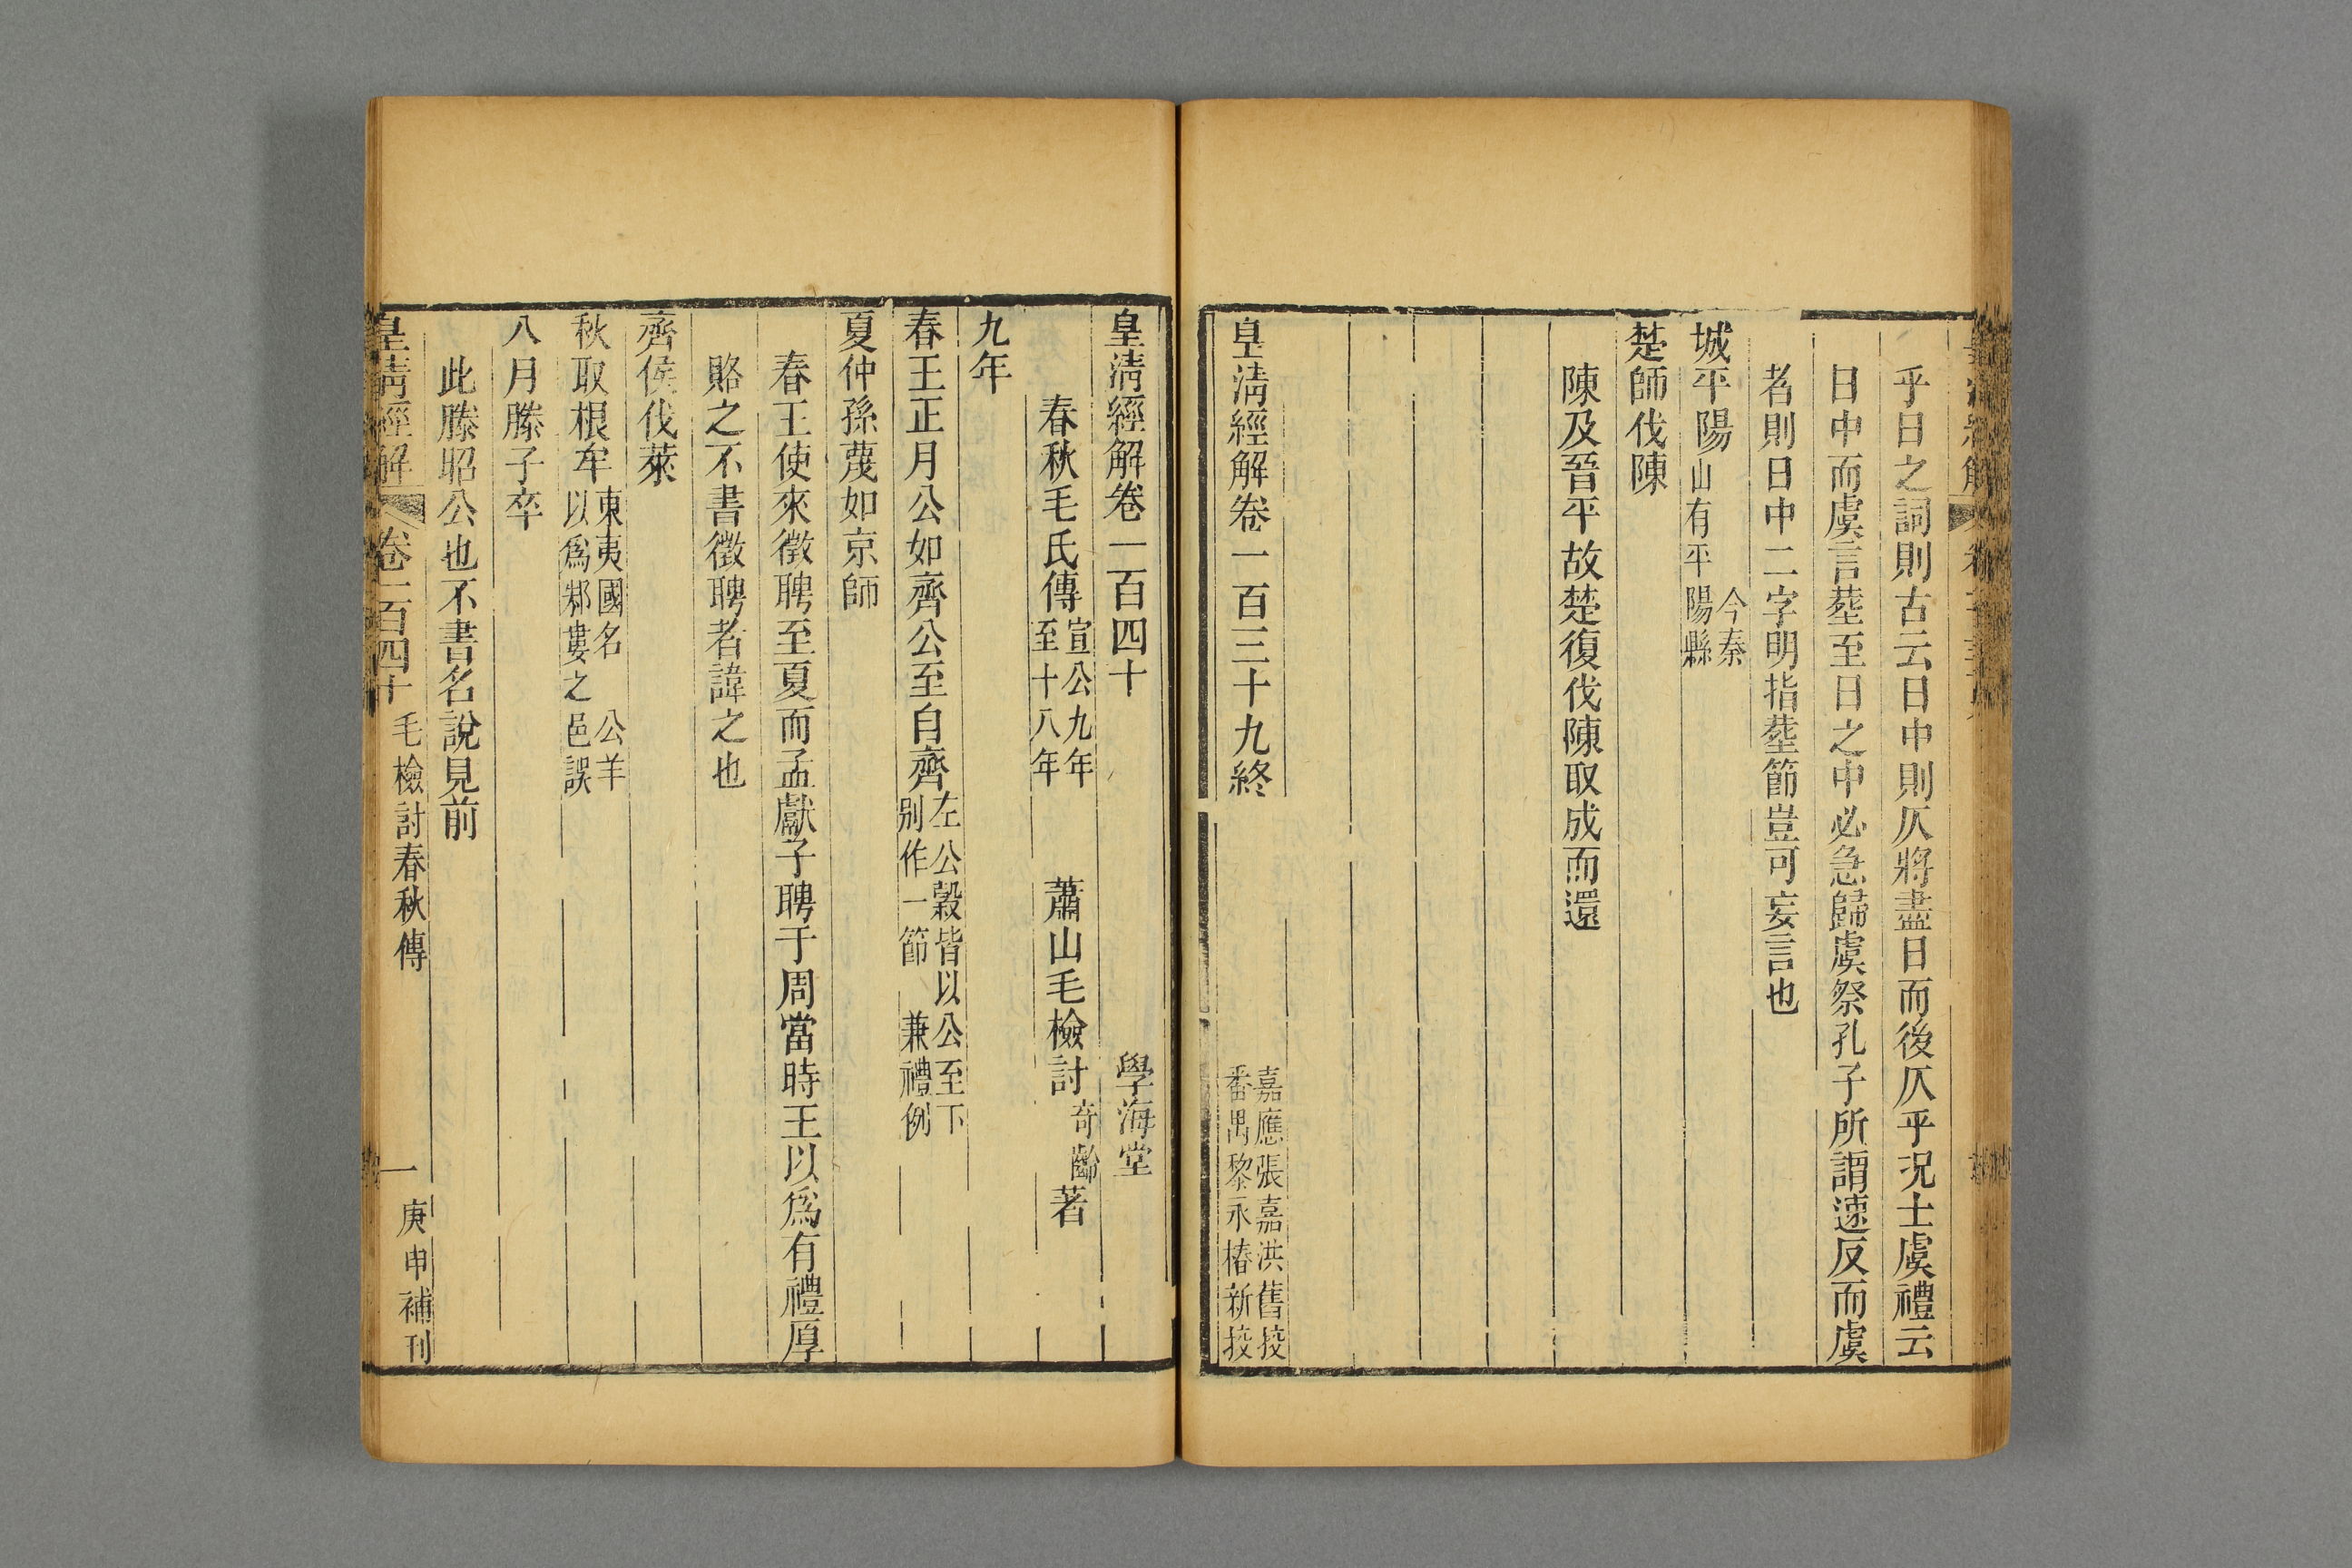 乎日之詞則古云日中則仄將盡日而後仄乎況士虞禮云
日中而虞言塟至日之中必急歸虞祭孔子所謂速反而虞
者則日中二字明指塟節豈可妄言也
城平陽今泰
山有平陽縣
楚師伐陳
陳及晉平故楚復伐陳取成而還
皇淸經解卷一百三十九終
嘉應張嘉洪舊挍
番禺黎永椿新挍
皇淸經解卷一百四十
學海堂
春秋毛氏傳宣公九年
至十八年
蕭山毛檢討奇齡著
九年
春王正月公如齊公至自齊左公穀皆以公至下
別作一節 兼禮例
夏仲孫蔑如京師
春王使來徵聘至夏而孟獻子聘于周當時王以爲有禮厚
賂之不書徵聘者諱之也
齊侯伐萊
秋取根牟東夷國名 公羊
以爲邾婁之邑誤
八月滕子卒
此滕昭公也不書名說見前
皇淸經解 卷一百四十 毛檢討春秋傳 一 庚申補刊